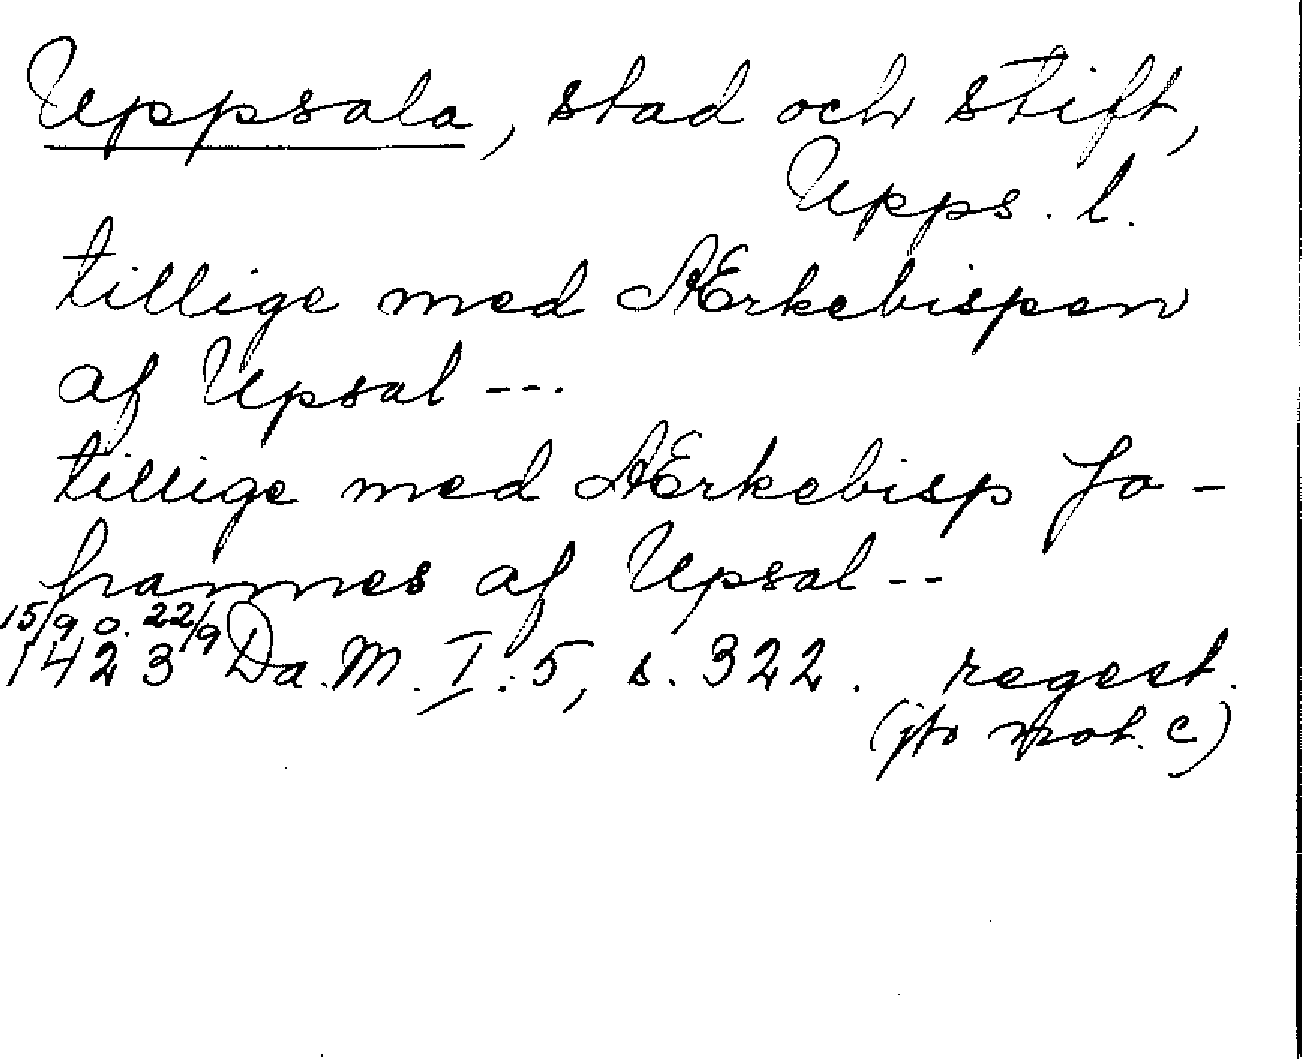 Uppsala, stad och stift,
Upps. l.
tillige med Ærkebispen
af Upsal ---
tillige med Ærkebisp Jo-
hannes af Upsal --
15/9 o. 22/9
1423 Da. M. I: 5, s. 322. regest.
(jfr mot. c)